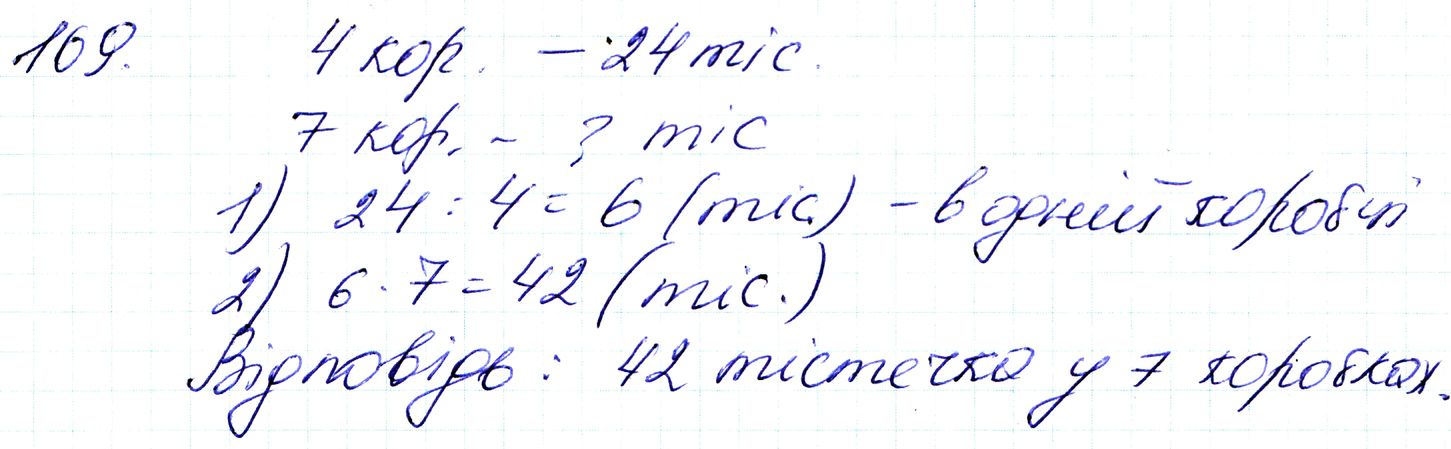 169. 4 кор. – 24 тіс.
7 кор. – ? тіс
1) 24 : 4 = 6 (тіс.) – в одній коробці
2) 6 · 7 = 42 (тіс.)
Відповідь: 42 тістечка у 7 коробках.